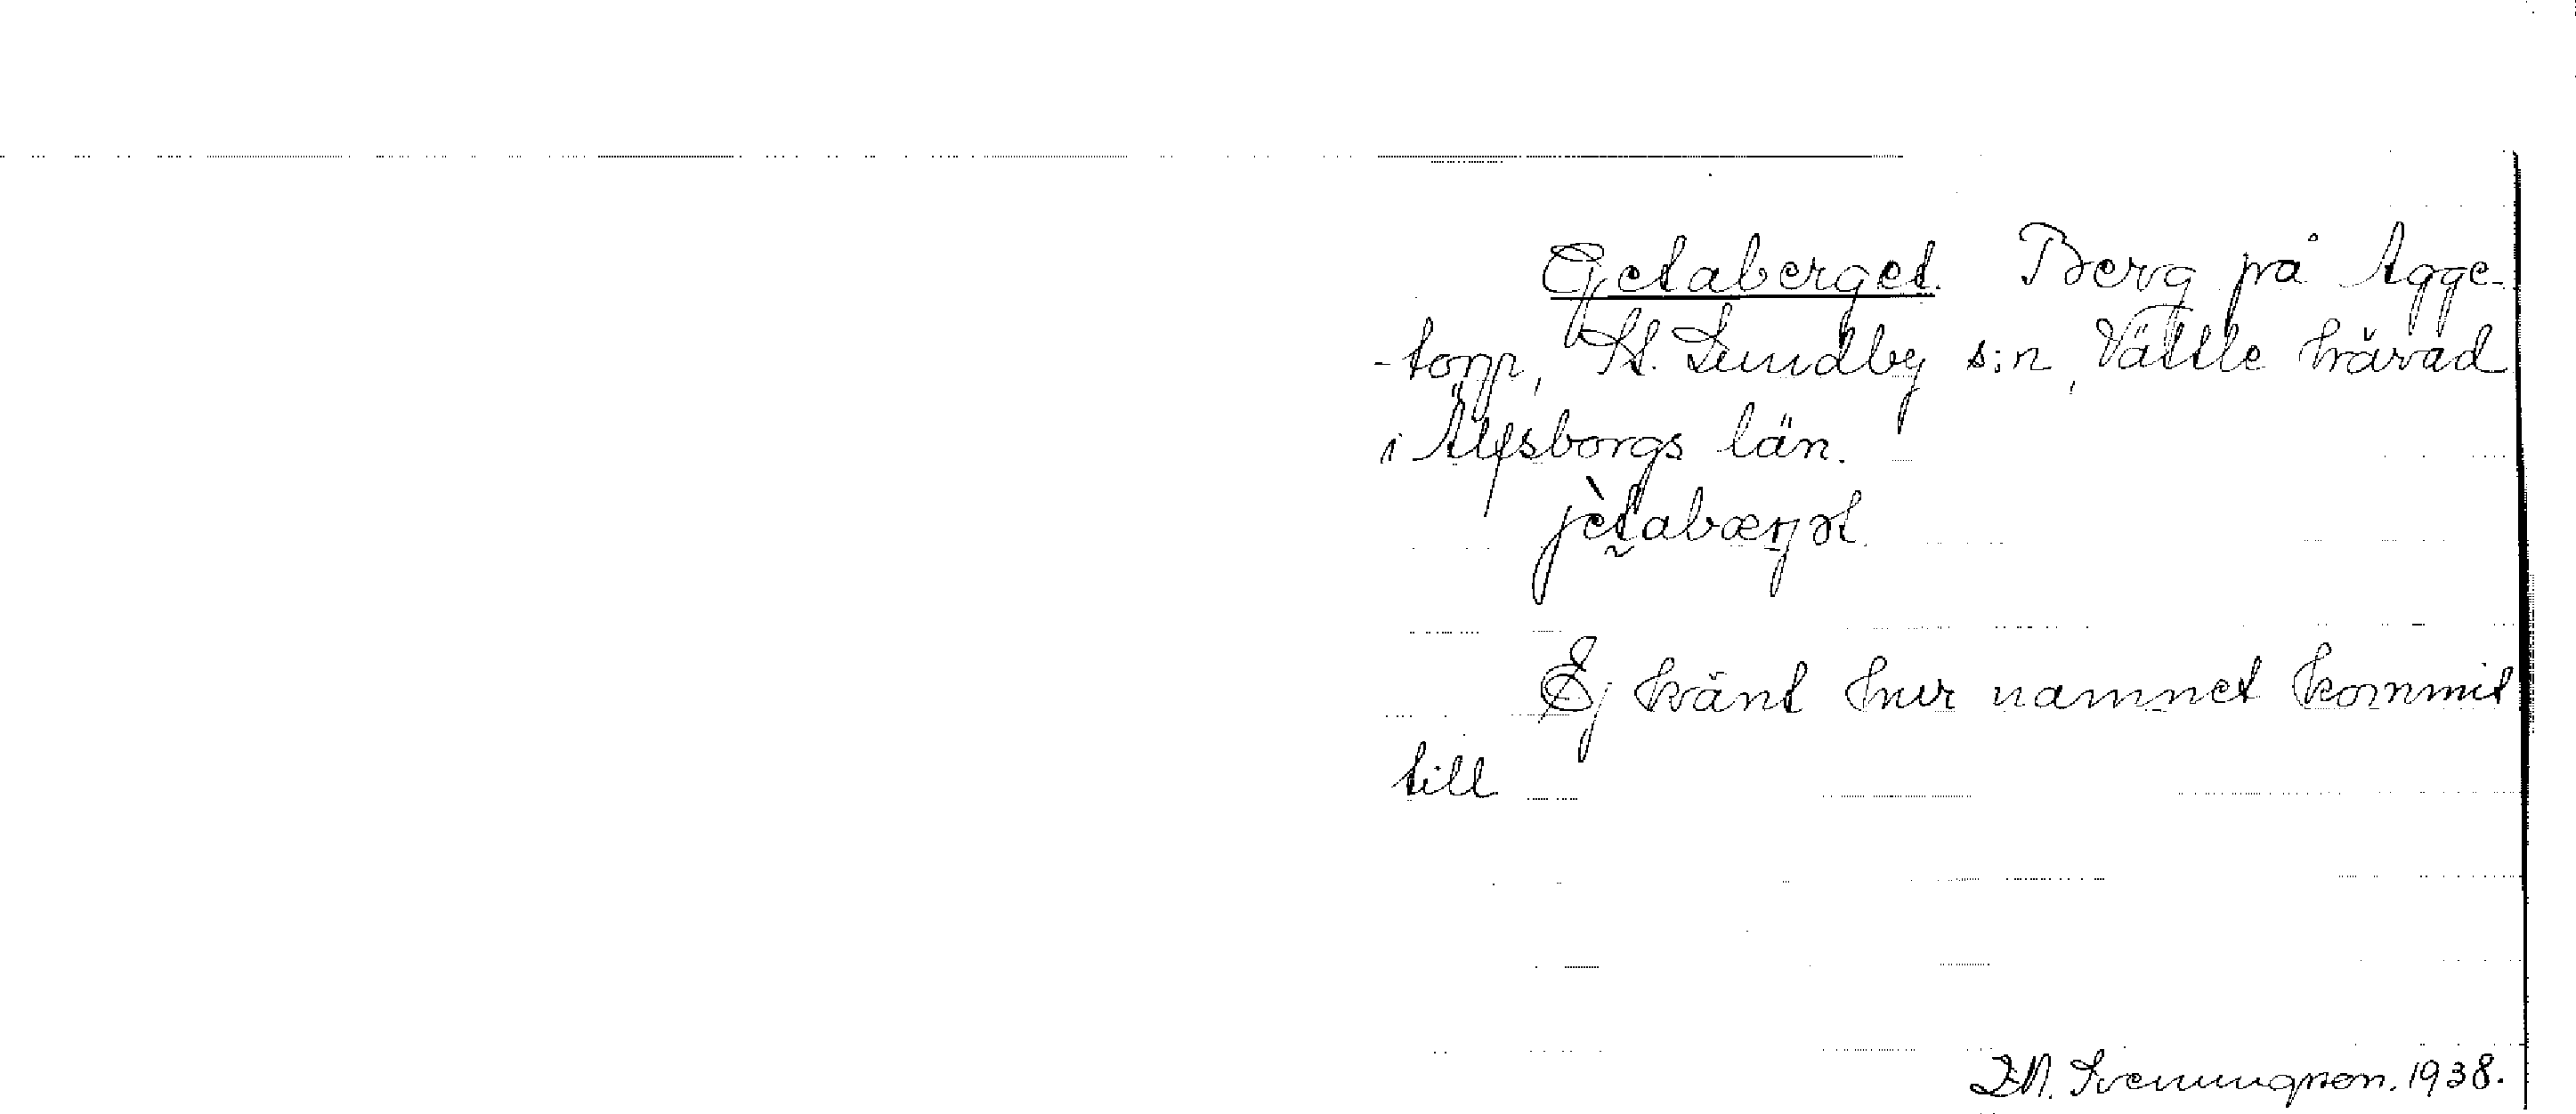 Getaberget. Berg på Agge-
-torp, St. Lundby s:n, Vättle härad
i Älfsborgs län.
jètabærjət.
Ej känt hur namnet kommit
till
Svenungson. 1938.